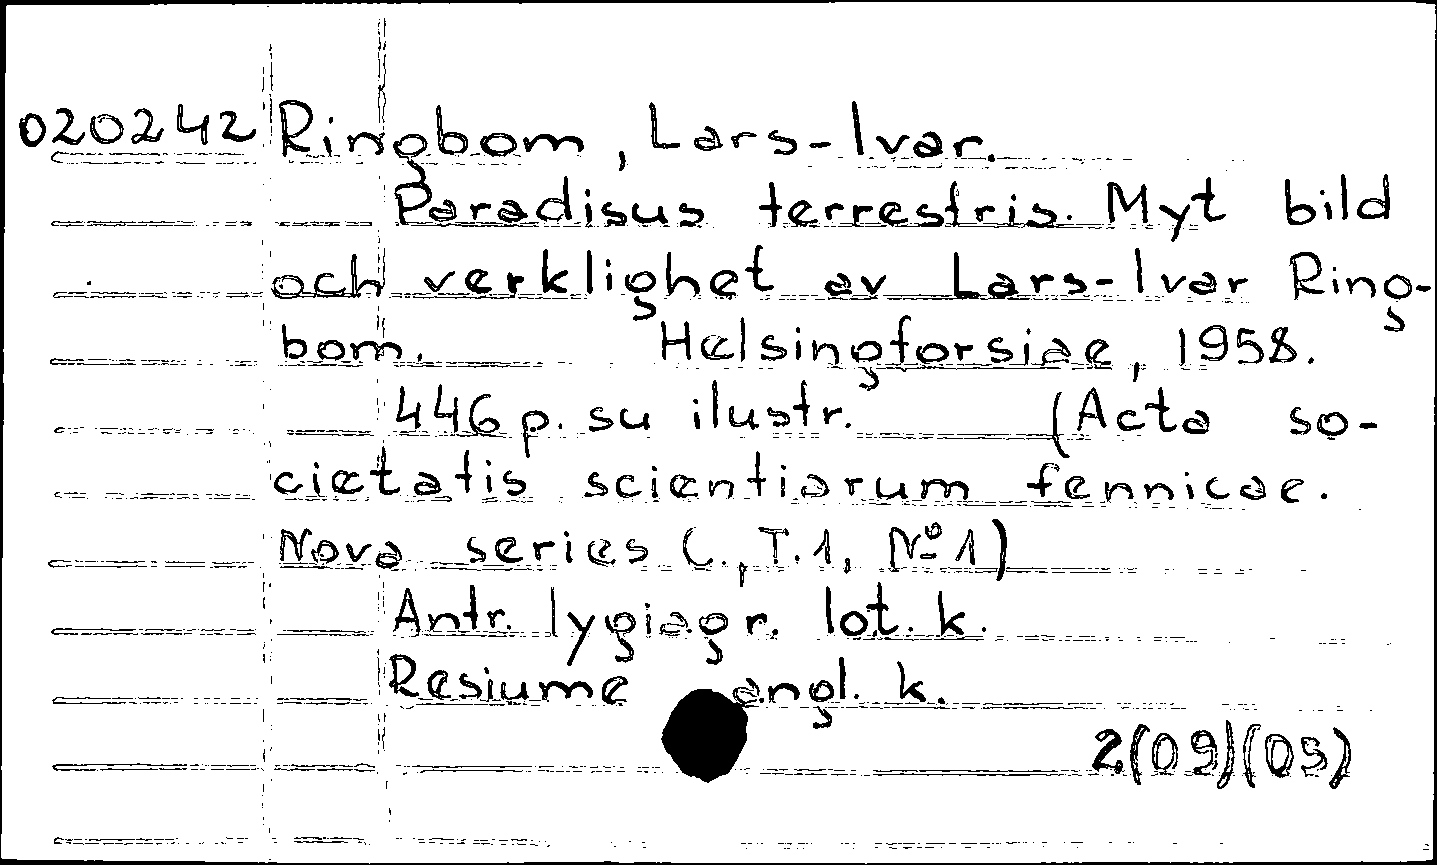 020242 Ringbom, Lars-Ivar.
Paradisus terrestris. Myt bild
och verklighet av Lars-Ivar Ring-
bom. Helsingforsiae, 1958.
446 p. su ilustr. (Acta so-
cietatis scientiarum fennicae.
Nova series C., T.1, № 1)
Antr. lygiagr. lot. k.
Resiume angl. k.
2(09)(05)